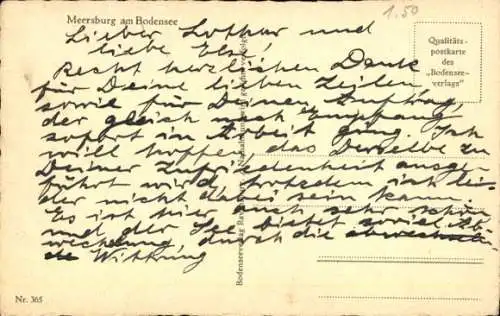 Meersburg am Bodensee
1.50
Lieber Lothar und
liebe Else!
Recht herzlichen Dank
für Deine lieben Zeilen
sowie für Deinen Auftrag,
der gleich nach Empfang
sofort in Arbeit ging. Ich
will hoffen, das Derselbe zu
Deiner Zufriedenheit ausge-
führt wird, trotzdem ich lei-
der nicht dabei sein kann.
Es ist hier auch sehr schön
und der See bietet soviel Ab-
wechslung durch die
Witterung
Qualitäts-
postkarte
des
„Bodensee-
verlags"
Bodenseeverlag
Nr. 365